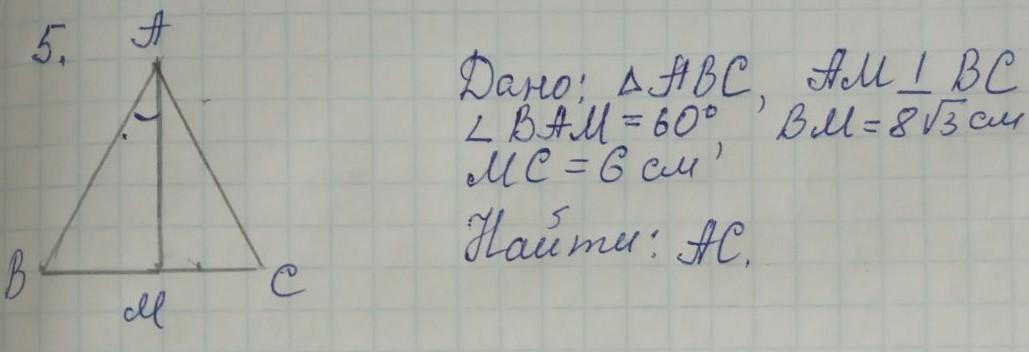 5.
A
B
M
C
Дано: △ABC, AM ⊥ BC
∠ BAM = 60°, BM = 8√3 см
MC = 6 см,
Найти: AC.